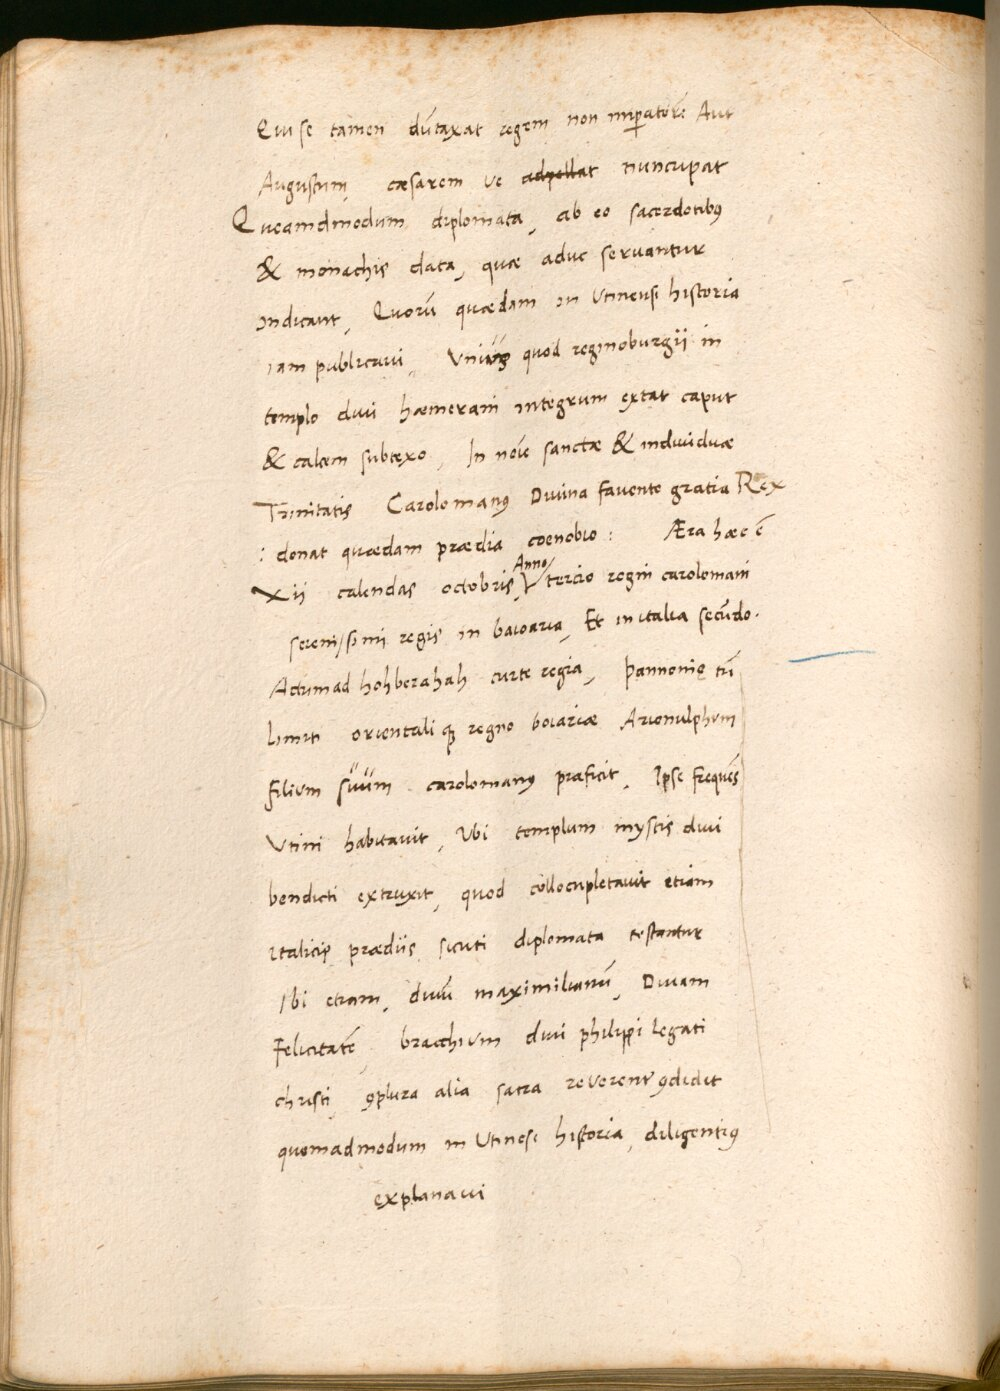 Qui se tamen dūtaxat regem non imꝑatorē Aut
Augustum, cæsarem ve adpellat nuncupat
Queamdmodum diplomata, ab eo sacerdotibꝰ
& monachis data, quæ aduc seruantur
indicant, Quorū quædam in Utinensi historia
iam publicaui, Uniꝰ quod reginoburgii in
templo diui hæmerami integrum extat caput
& calcem subtexo, In noīe sanctæ & indiuiduæ
Trinitatis Carolomanꝰ Diuina fauente gratia Rex
: donat quædam prædia coenobio : Æra hæc ē
Xii calendas octobris, Anno tercio regni carolomani
serenissimi regis in baioaria, Et in italia secūdo.
Actum ad hohberahah curte regia, Pannonię tū
Limiti orientaliqꝫ regno boiariæ Arionulphum
filium suum carolomanꝰ præficit, Ipse frequēs
Utini habitauit, Ubi templum mystis diui
bendicti extruxit, quod collocupletauit etiam
italicis prædiis sicuti diplomata testantur
Ibi etiam, diuū maximilianū, Diuam
Felicitatē, bracchium diui philippi Legati
christi, ꝯplura alia sacra reuerent ꝯdidit
quemadmodum in Utinēsi historia, diligentiꝰ
explanaui